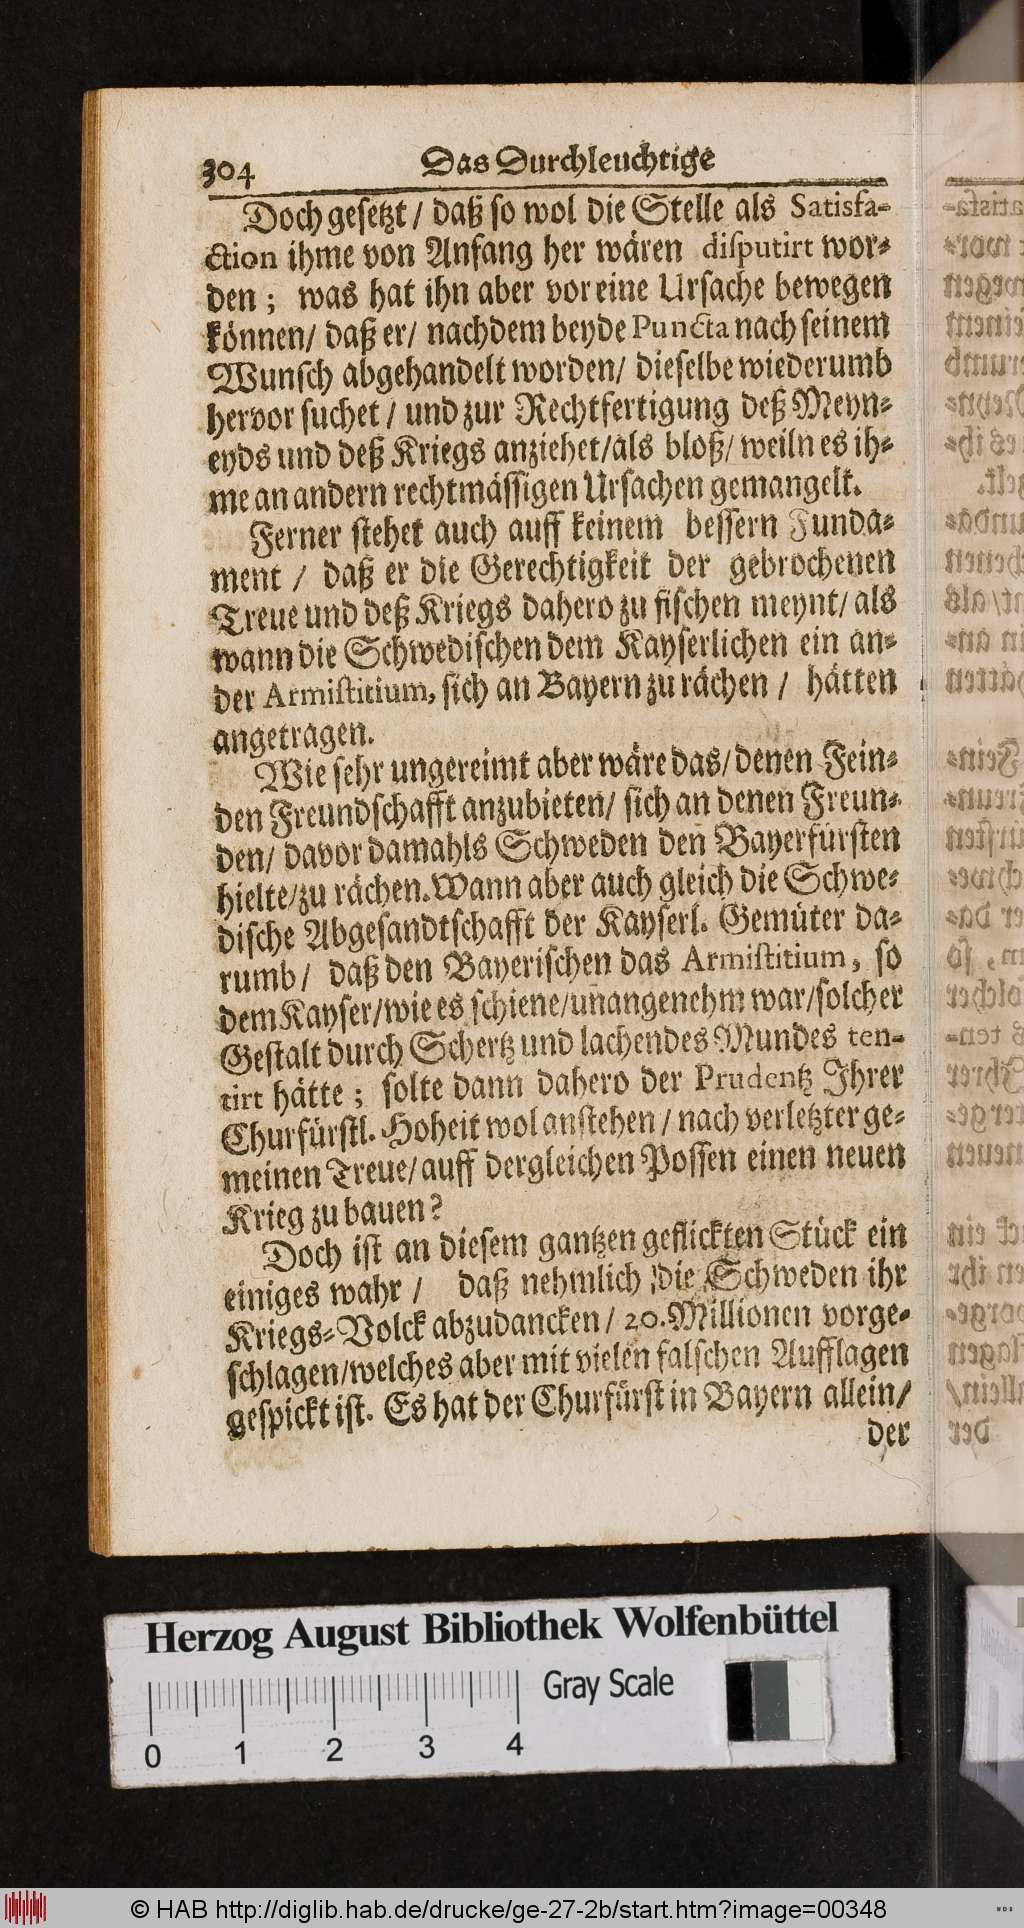 304 Das Durchleuchtige
Doch gesetzt / daß so wol die Stelle als Satisfa-
ction ihme von Anfang her wären disputirt wor-
den ; was hat ihn aber vor eine Ursache bewegen
können / daß er / nachdem beyde Puncta nach seinem
Wunsch abgehandelt worden / dieselbe wiederumb
hervor suchet / und zur Rechtfertigung deß Meyn-
eyds und deß Kriegs anziehet / als bloß / weiln es ih-
me an andern rechtmässigen Ursachen gemangelt.
Ferner stehet auch auff keinem bessern Funda-
ment / daß er die Gerechtigkeit der gebrochenen
Treue und deß Kriegs dahero zu fischen meynt / als
wann die Schwedischen dem Kayserlichen ein an-
der Armistitium, sich an Bayern zu rächen / hätten
angetragen.
Wie sehr ungereimt aber wäre das / denen Fein-
den Freundschafft anzubieten / sich an denen Freun-
den / davor damahls Schweden den Bayerfürsten
hielte / zu rächen. Wann aber auch gleich die Schwe-
dische Abgesandtschafft der Kayserl. Gemüter da-
rumb / daß den Bayerischen das Armistitium, so
dem Kayser / wie es schiene / unangenehm war / solcher
Gestalt durch Schertz und lachendes Mundes ten-
tirt hätte ; solte dann dahero der Prudentz Ihrer
Churfürstl. Hoheit wol anstehen / nach verletzter ge-
meinen Treue / auff dergleichen Possen einen neuen
Krieg zu bauen ?
Doch ist an diesem gantzen geflickten Stück ein
einiges wahr / daß nehmlich die Schweden ihr
Kriegs-Volck abzudancken / 20. Millionen vorge-
schlagen / welches aber mit vielen falschen Aufflagen
gespickt ist. Es hat der Churfürst in Bayern allein /
der
Herzog August Bibliothek Wolfenbüttel
Gray Scale
0 1 2 3 4
© HAB http://diglib.hab.de/drucke/ge-27-2b/start.htm?image=00348